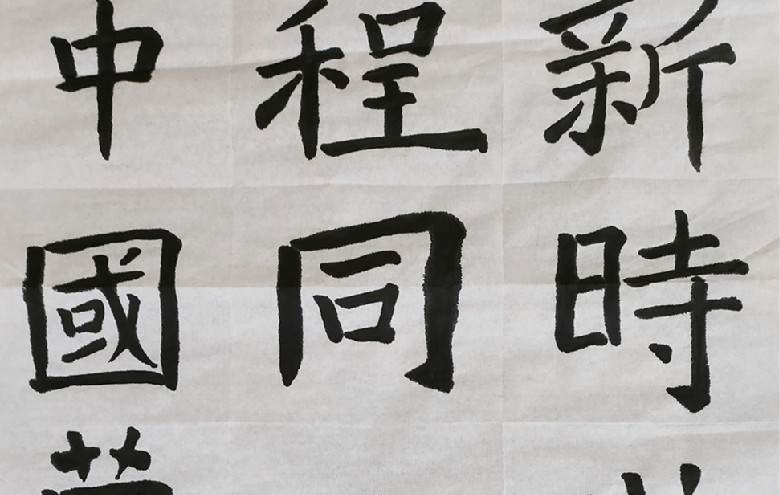 新時
程同
中國